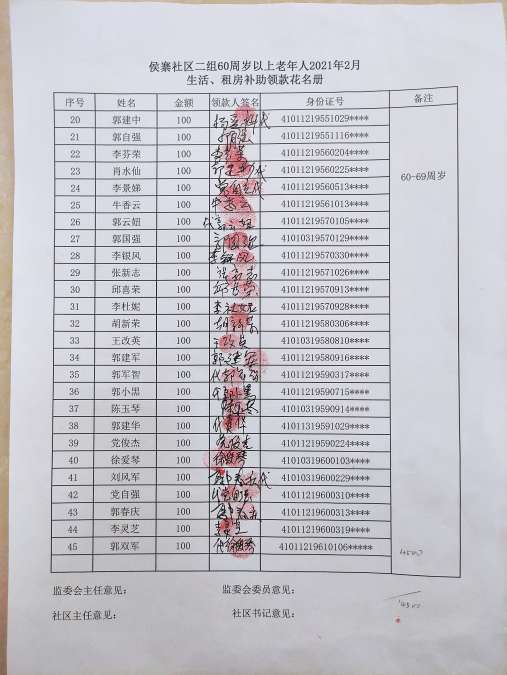 侯寨社区二组60周岁以上老年人2021年2月
生活、租房补助领款花名册
序号 姓名 金额 领款人签名 身份证号 备注
20 郭建中 100 41011219551029****
21 郭自强 100 41011219551116****
22 李芬荣 100 41011219560204****
23 肖水仙 100 41011219560225**** 60-69周岁
24 李景娣 100 41011219560513****
25 牛香云 100 牛香云 41011219561013****
26 郭云妞 100 41011219570105****
27 郭国强 100 41010319570129****
28 李银风 100 李银风 41011219570330****
29 张新志 100 张新志 41011219571026****
30 邱喜荣 100 邱喜荣 41011219570913****
31 李杜妮 100 41011219570928****
32 胡新荣 100 胡新荣 41011219580306****
33 王改英 100 41010319580810****
34 郭建军 100 郭建军 41011219580916****
35 郭军智 100 41011219590317****
36 郭小黑 100 41011219590715****
37 陈玉琴 100 41010319590914****
38 郭建华 100 41011319591029****
39 党俊杰 100 党俊杰 41011219590224****
40 徐爱琴 100 徐爱琴 41010319600103****
41 刘风军 100 41010319600229****
42 党自强 100 41011219600310****
43 郭春庆 100 41011219600313****
44 李灵芝 100 41011219600319****
45 郭双军 100 代徐爱琴 41011219610106***** 4500
监委会主任意见： 监委会委员意见：
社区主任意见： 社区书记意见：